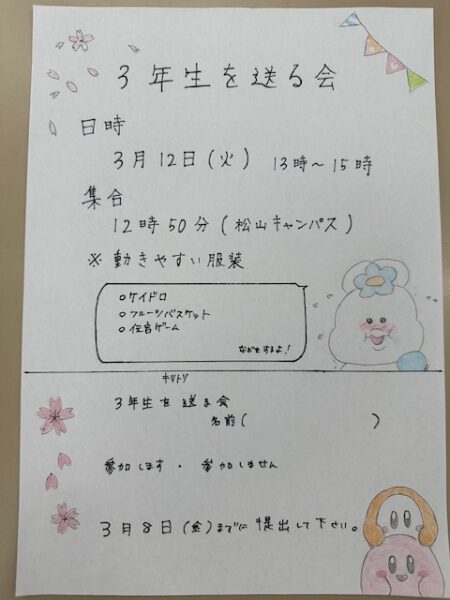 3年生を送る会
日時
3月12日(火) 13時～15時
集合
12時50分(松山キャンパス)
※動きやすい服装
○ケイドロ
○フルーツバスケット
○伝言ゲーム
などをするよ!
キリトリ
3年生を送る会
名前( )
参加します・参加しません
3月8日(金)までに提出して下さい。